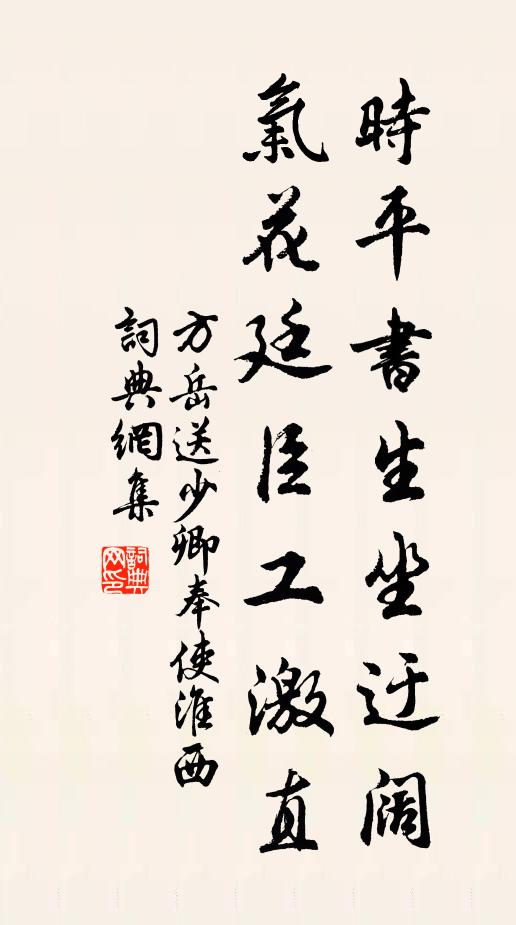 時平書生坐迂闊
氣花廷臣工激直
方岳送少卿奉使淮西
詞典網集
詞典網印